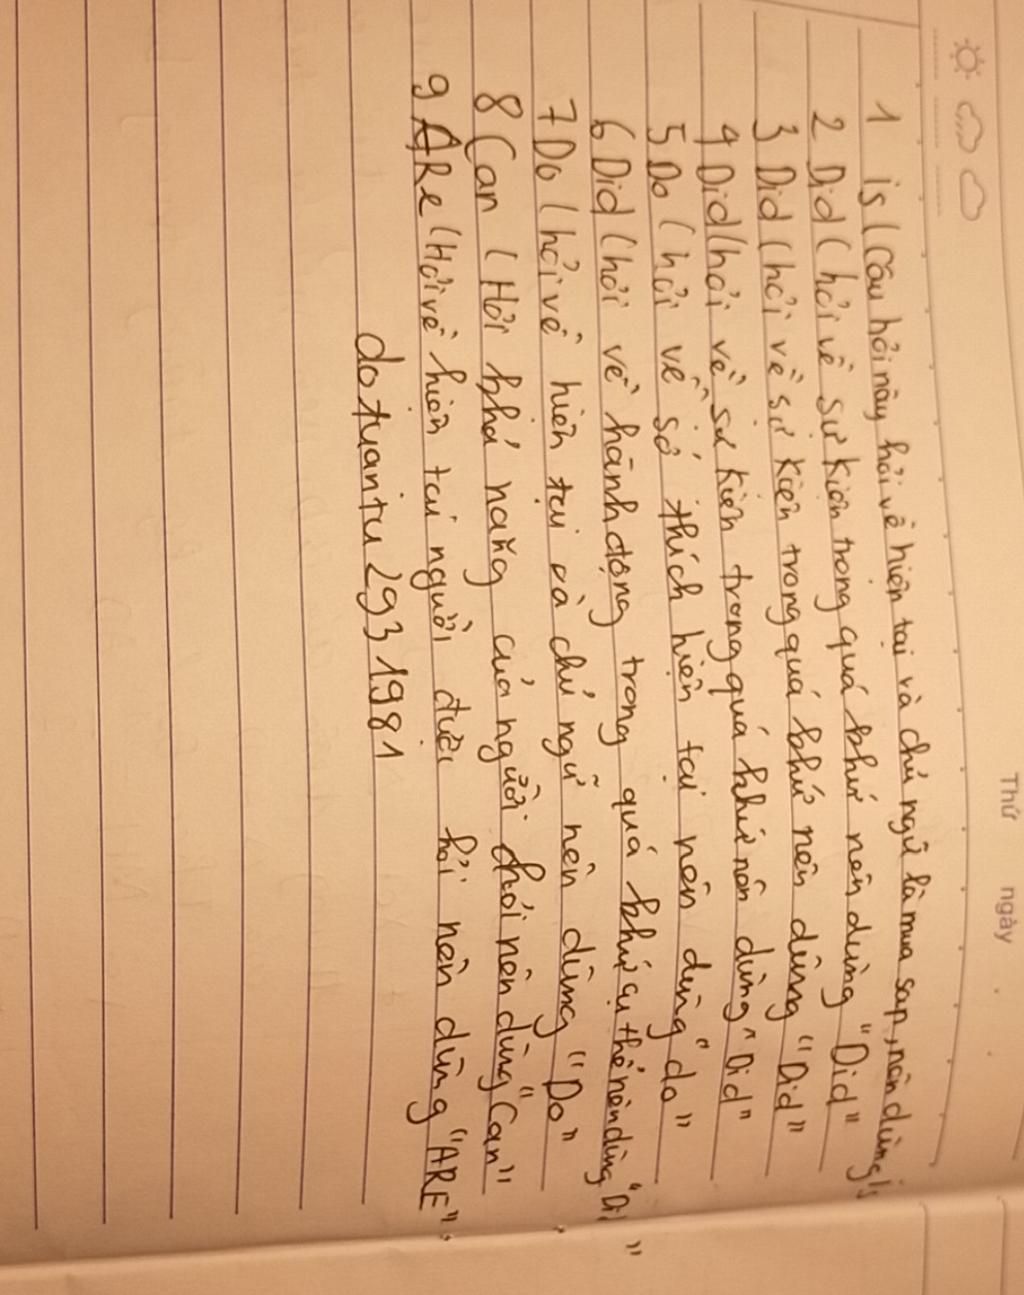 Thứ ngày
1 is (câu hỏi này hỏi về hiện tại và chủ ngữ là mua sap, nên dùng is
2 Did (hỏi về sự kiện trong quá khứ nên dùng "Did"
3 Did (hỏi về sự kiện trong quá khứ nên dùng "Did"
4 Did (hỏi về sự kiện trong quá khứ nên dùng "Did"
5 Do (hỏi về sở thích hiện tại nên dụng "do"
6 Did (hỏi về hành động trong quá khứ cụ thể nên dùng "Di "
7 Do (hỏi về hiện tại và chủ ngữ nên dùng "Do"
8 Can (Hỏi khả năng của người hỏi nên dùng "Can"
9 ARe (Hỏi về hiện tại người được hỏi nên dùng "ARE".
dotuantu2931981